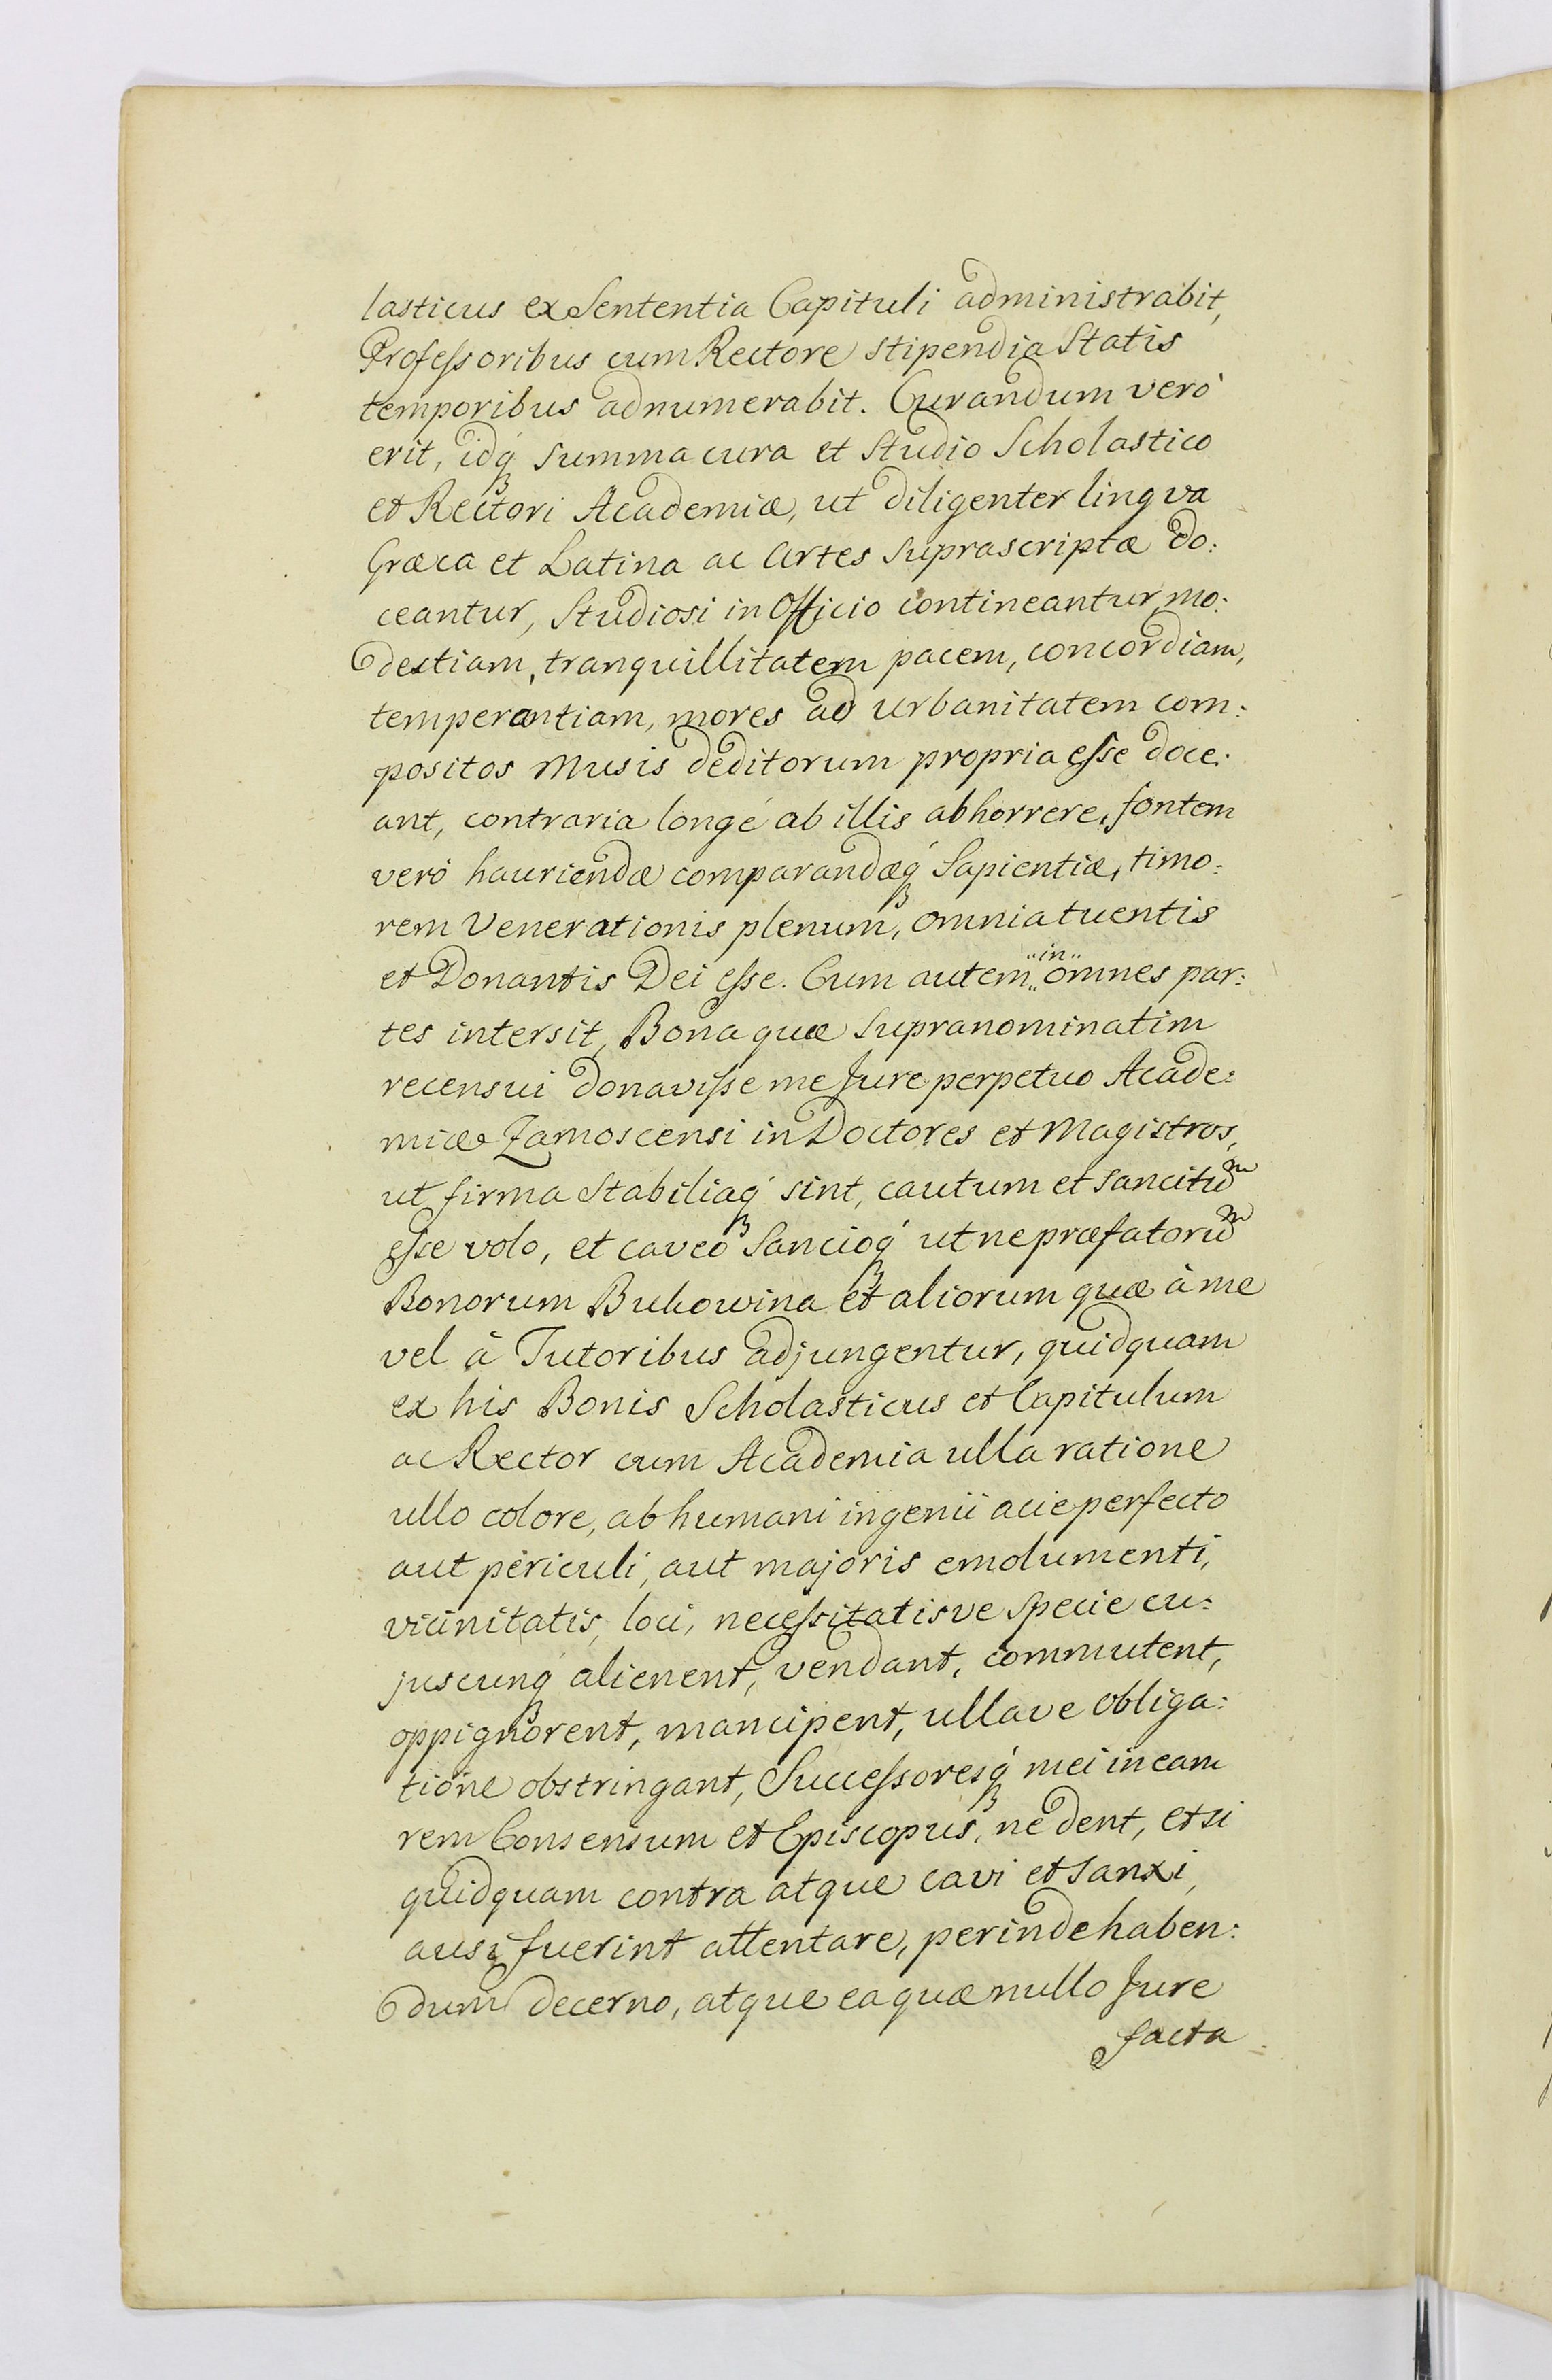 lasticus ex Sententia Capituli administrabit,
Professoribus cum Rectore stipendia Statis
temporibus adnumerabit. Curandum verò
erit, idq́ꝫ summa cura et studio Scholastico
et Rectori Academiæ, ut diligenter lingva
Græca et Latina ac Artes suprascriptæ do:
ceantur, Studiosi in Officio contineantur mo:
destiam, tranquillitatem pacem, concordiam,
temperantiam, mores ad urbanitatem com:
positos Musis deditorum propria esse doce:
ant, contraria longé ab illis abhorrere, fontem
veró hauriendæ comparandæq́ꝫ Sapientiæ, timo:
rem Venerationis plenum, omnia tuentis
et Donantis Dei esse. Cum autem „in„ omnes par:
tes intersit, Bona quæ supranominatim
recensui donavisse me Jure perpetuo Acade:
miæ Zamoscensi in Doctores et Magistros,
ut firma stabiliaq́ꝫ sint, cautum et sancitũm
esse volo, et caveo Sancioq́ꝫ ut ne præfatorũm
Bonorum Bukowina et aliorum quæ à me
vel à Tutoribus adjungentur, quidquam
ex his Bonis Scholasticus et Capitulum
ac Rector cum Academia ulla ratione
ullo colore, ab humani ingenii acie perfecto
aut periculi, aut majoris emolumenti,
vicinitatis, loci, necessitatisve specie cu:
juscunq́ꝫ alienent, vendant, commutent,
oppignorent, mancipent, ullave obliga:
tione obstringant, Successoresq́ꝫ mei in eam
rem Consensum et Episcopus, ne dent, et si
quidquam contra atque cavi et sanxi,
ausi fuerint attentare, perinde haben:
dum decerno, atque ea quæ nullo Jure
facta